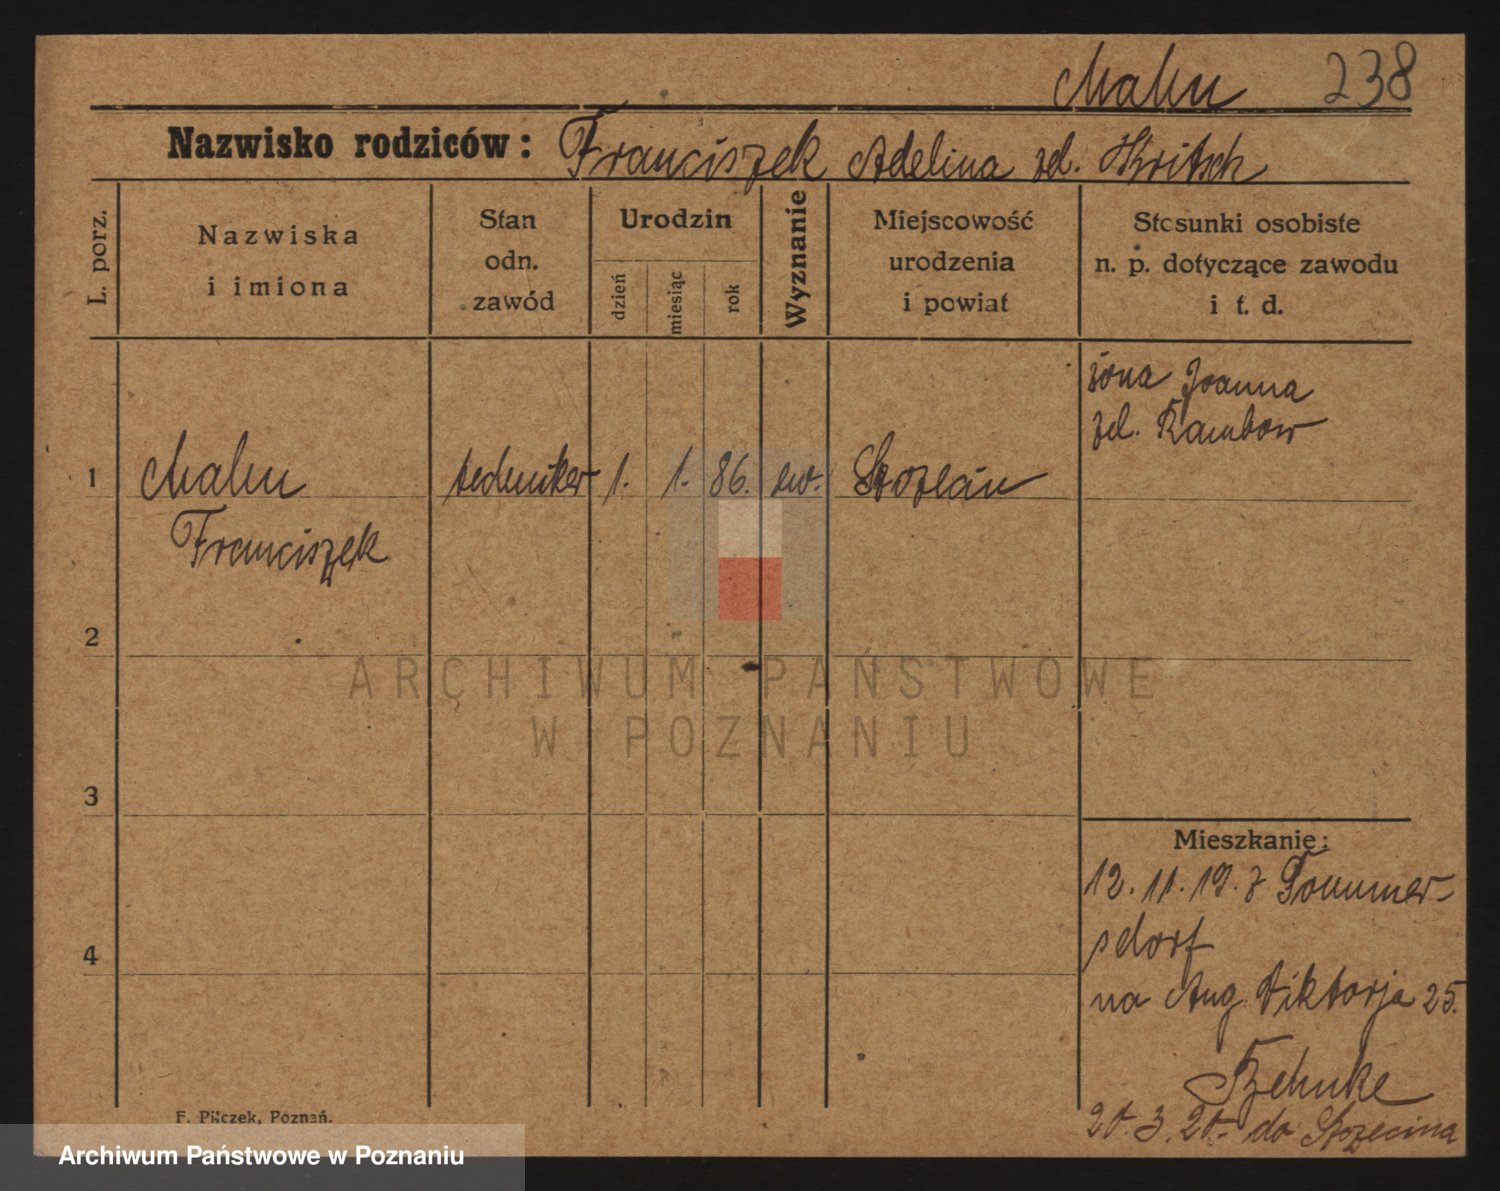 Mahn 238
Nazwisko rodziców: Franciszek Adelina zd. Kritsch
L. porz.
Nazwiska
i imiona
Stan
odn.
zawód
Urodzin
dzień
miesiąc
rok
Wyznanie
Miejscowość
urodzenia
i powiat
Stosunki osobiste
n. p. dotyczące zawodu
i t. d.
żona Joanna
zd. Rambow
1 Mahn techniker 1. 1. 86. ew.
Franciszek
2
ARCHIWUM PAŃSTWOWE
W POZNANIU
3
Mieszkanie:
12. 11. 19. z Pommer-
sdorf
4
na Aug Viktorja 25.
Behnke
20. 3. 20. do Szczecina
F. Pilczek, Poznań.
Archiwum Państwowe w Poznaniu